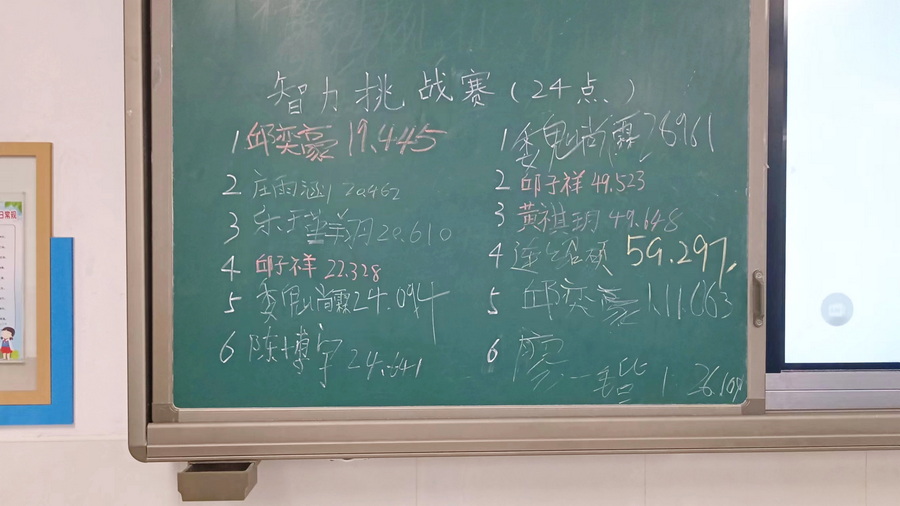 智力挑战赛（24点）
1 邱奕豪 19.445
2 庄雨涵 20.462
3 20.610
4 邱子祥 22.328
5 魏尚霖 24.094
6 陈博宇 24.641
1 魏尚霖
2 邱子祥 49.523
3 黄祺玥 49.648
4 连 硕 59.297
5 邱奕豪 1.11.063
6 廖一 1.26.109